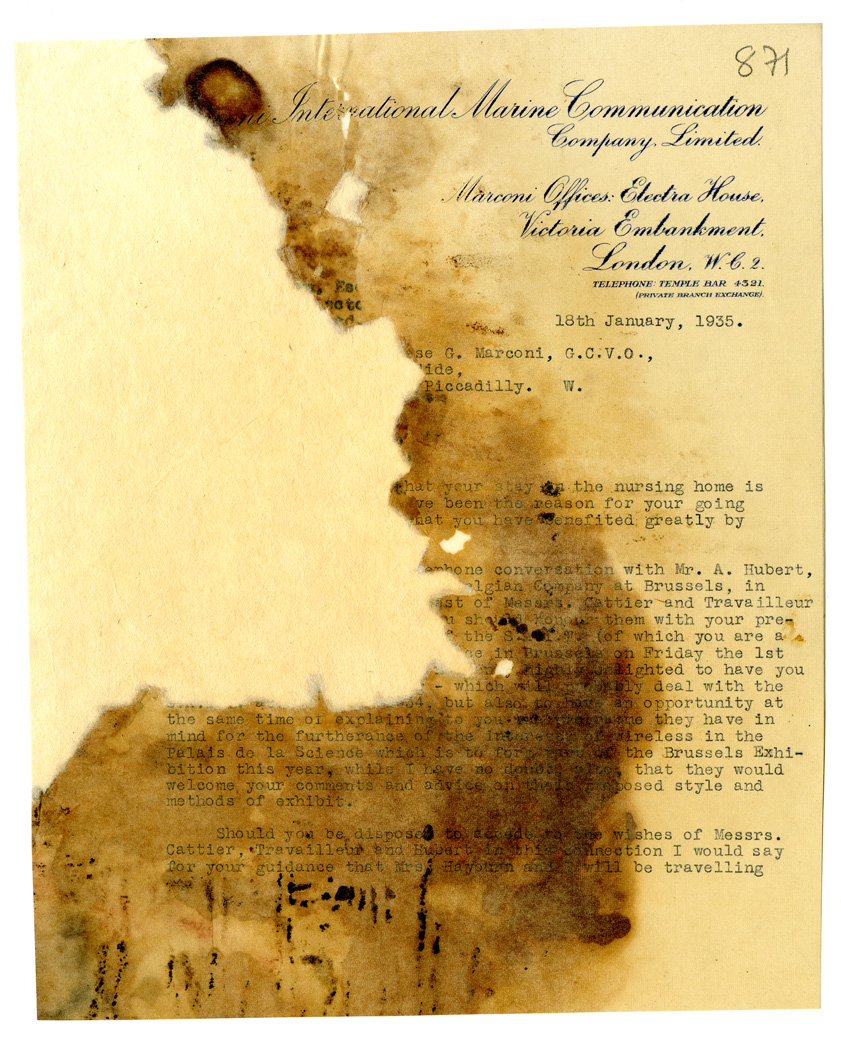 871
International Marine Communication
Company, Limited.
Marconi Offices: Electra House,
Victoria Embankment,
London, W.C. 2.
TELEPHONE: TEMPLE BAR 4321.
(PRIVATE BRANCH EXCHANGE).
18th January, 1935.
se G. Marconi, G.C.V.O.,
lide,
Piccadilly. W.
hat your stay in the nursing home is
ve been the reason for your going
hat you have benefited greatly by
ephone conversation with Mr. A. Hubert,
elgian Company at Brussels, in
est of Messrs. Cattier and Travailleur
u should honour them with your pre-
f the (of which you are a
ce in Brussels on Friday the 1st
highly delighted to have you
- which will probably deal with the
34, but also to have an opportunity at
the same time of explaining to you they have in
mind for the furtherance of the interests of wireless in the
Palais de la Science which is to form part of the Brussels Exhi-
bition this year, while I have no doubt, also, that they would
welcome your comments and advice on their proposed style and
methods of exhibit.
Should you be disposed to accede to the wishes of Messrs.
Cattier, Travailleur and Hubert in this connection I would say
for your guidance that Mrs. Hayburn and I will be travelling